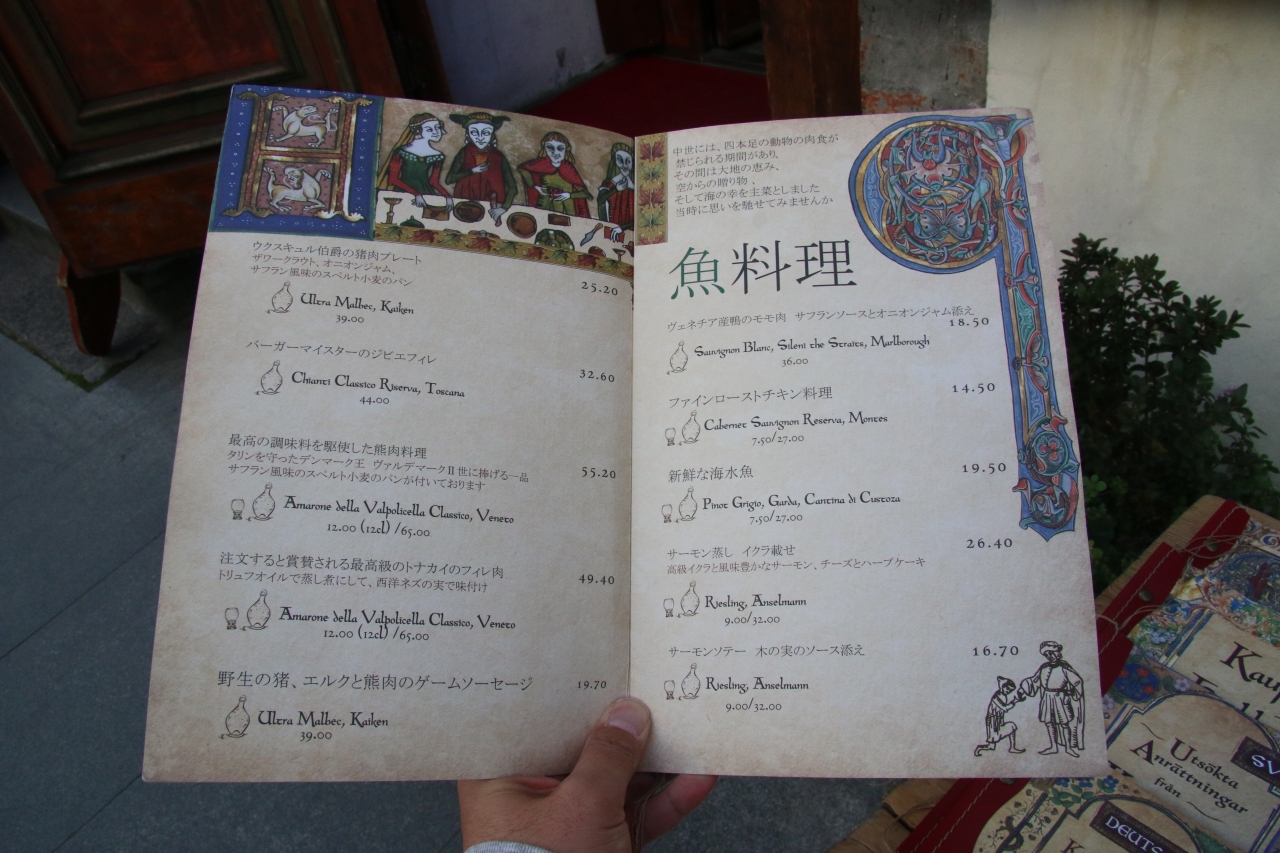 ウクスキュル伯爵の猪肉プレート
ザワークラウト、オニオンジャム、
サフラン風味のスペルト小麦のパン
25.20
Ultra Malbec, Kaiken
39.00
バーガーマイスターのジビエフィレ
32.60
Chianti Classico Riserva, Toscana
44.00
最高の調味料を駆使した熊肉料理
タリンを守ったデンマーク王 ヴァルデマークII世に捧げる一品
サフラン風味のスペルト小麦のパンが付いております
55.20
Amarone della Valpolicella Classico, Veneto
12.00 (12cl) /65.00
注文すると賞賛される最高級のトナカイのフィレ肉
トリュフオイルで蒸し煮にして、西洋ネズの実で味付け
49.40
Amarone della Valpolicella Classico, Veneto
12.00 (12cl) /65.00
野生の猪、エルクと熊肉のゲームソーセージ
19.70
Ultra Malbec, Kaiken
39.00
中世には、四本足の動物の肉食が
禁じられる期間があり、
その間は大地の恵み、
空からの贈り物、
そして海の幸を主菜としました
当時に思いを馳せてみませんか
魚料理
ヴェネチア産鴨のモモ肉 サフランソースとオニオンジャム添え
18.50
Sauvignon Blanc, Silent the Straits, Marlborough
36.00
ファインローストチキン料理
14.50
Cabernet Sauvignon Reserva, Montes
7.50/27.00
新鮮な海水魚
19.50
Pinot Grigio, Garda, Cantina di Custoza
7.50/27.00
サーモン蒸し イクラ載せ
高級イクラと風味豊かなサーモン、チーズとハーブケーキ
26.40
Riesling, Anselmann
9.00/32.00
サーモンソテー 木の実のソース添え
16.70
Riesling, Anselmann
9.00/32.00
Utsökta
Anrättningar
från
DEUTS